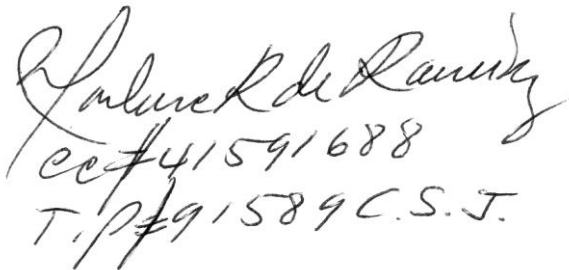 Marlene R de Ramírez
cc# 41591688
T.P# 91589 C.S.J.